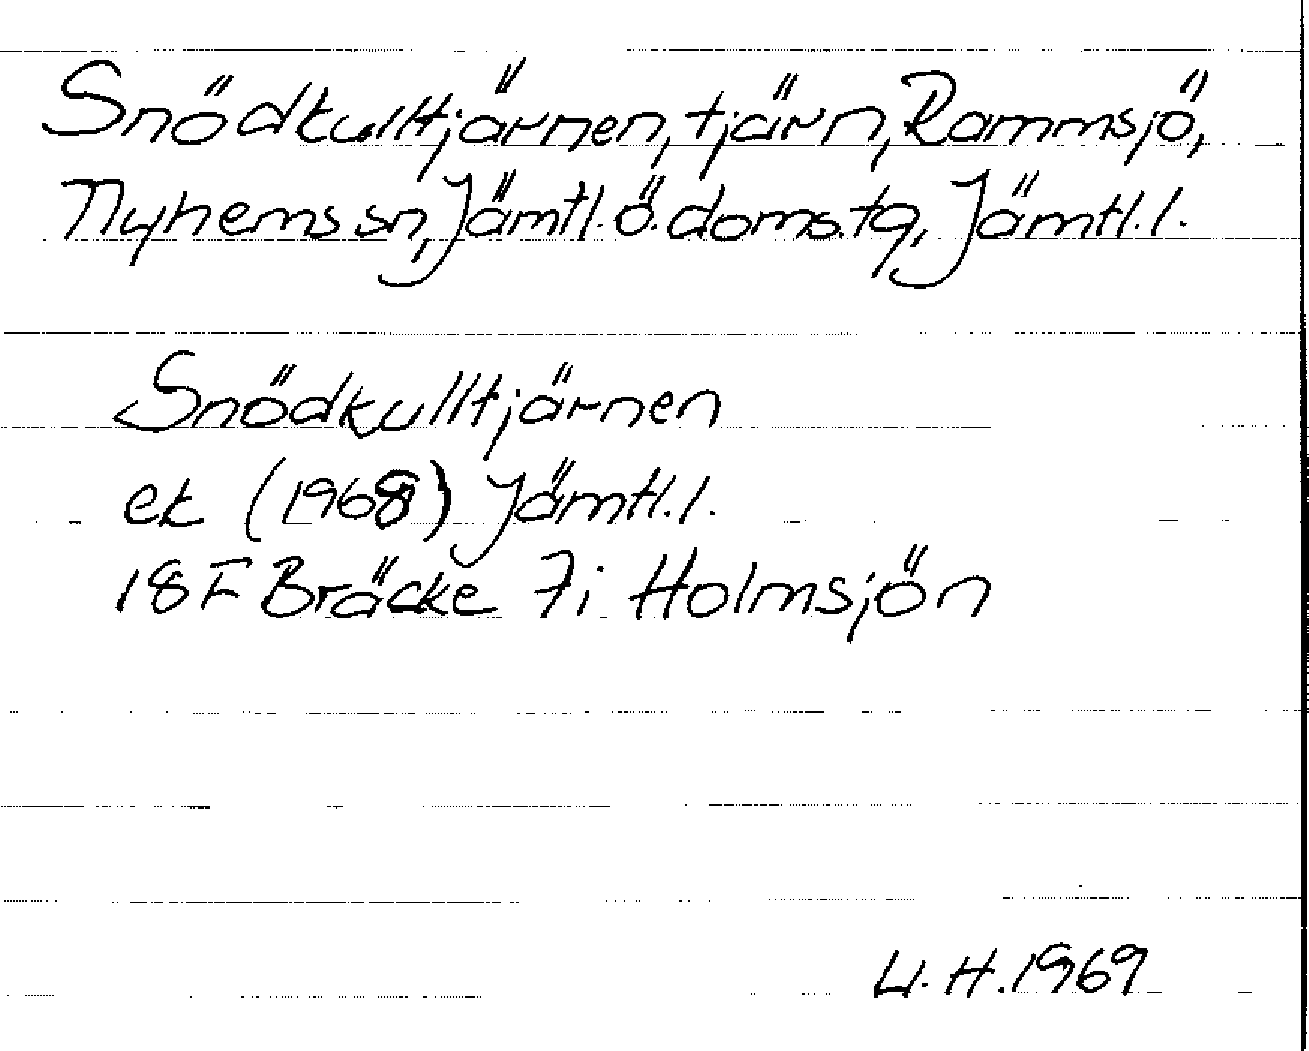 Snödkulltjärnen, tjärn, Rammsjö,
Nyhems sn, Jämtl. ö. doms.tg, Jämtl. l.
Snödkulltjärnen
ek (1968) Jämtl. l.
18F Bräcke 7i Holmsjön
U. H. 1969